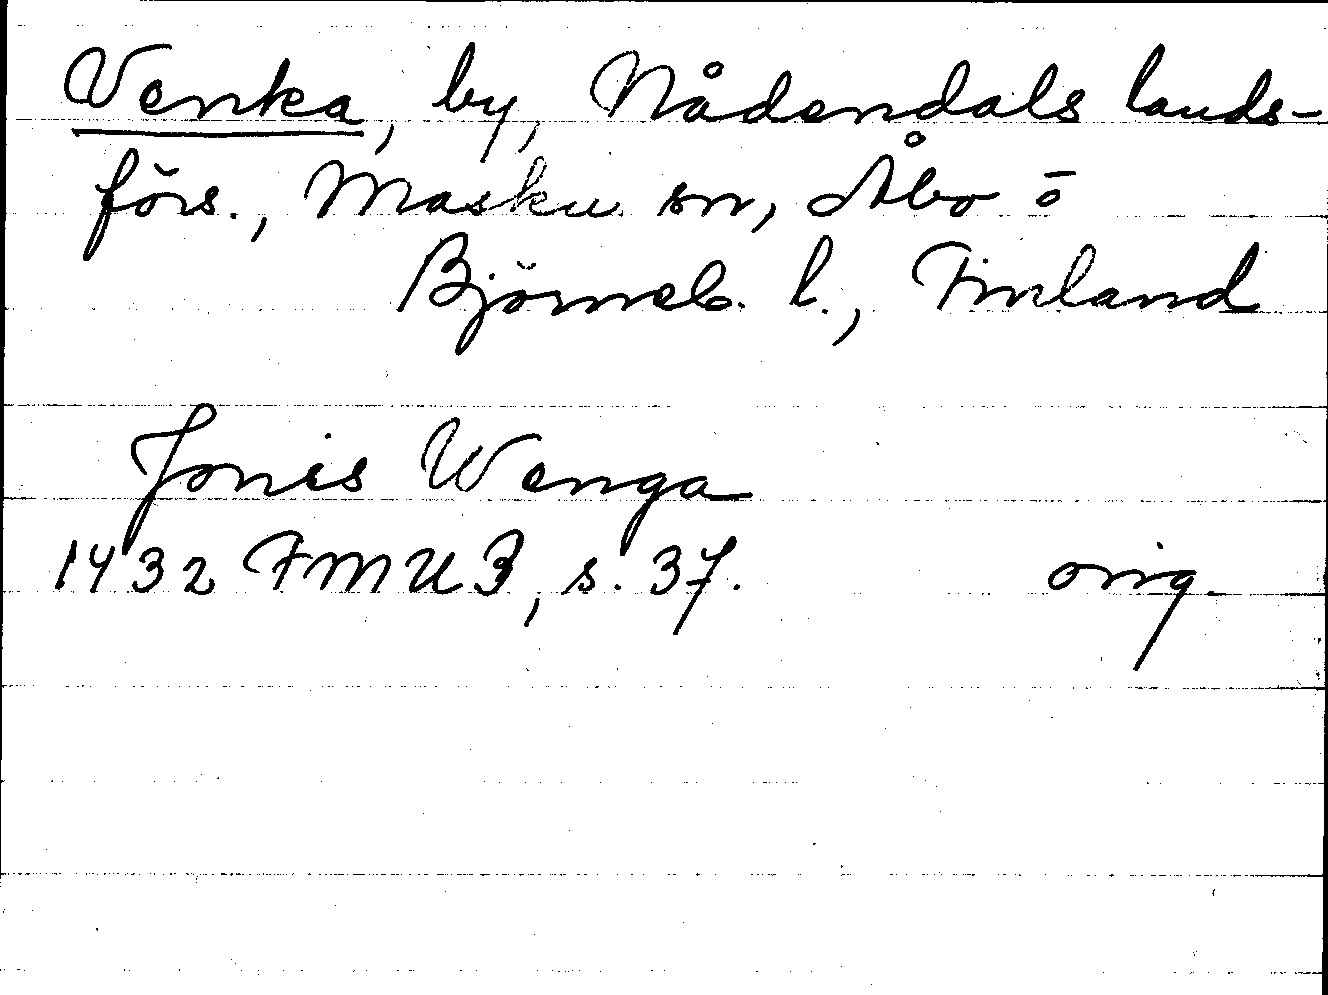 Venka, by, Nådendals lands-
förs., Masku sn, Åbo o
Björneb. l., Finland
Jonis Wenga
1432 FMU 3, s. 37.
orig.